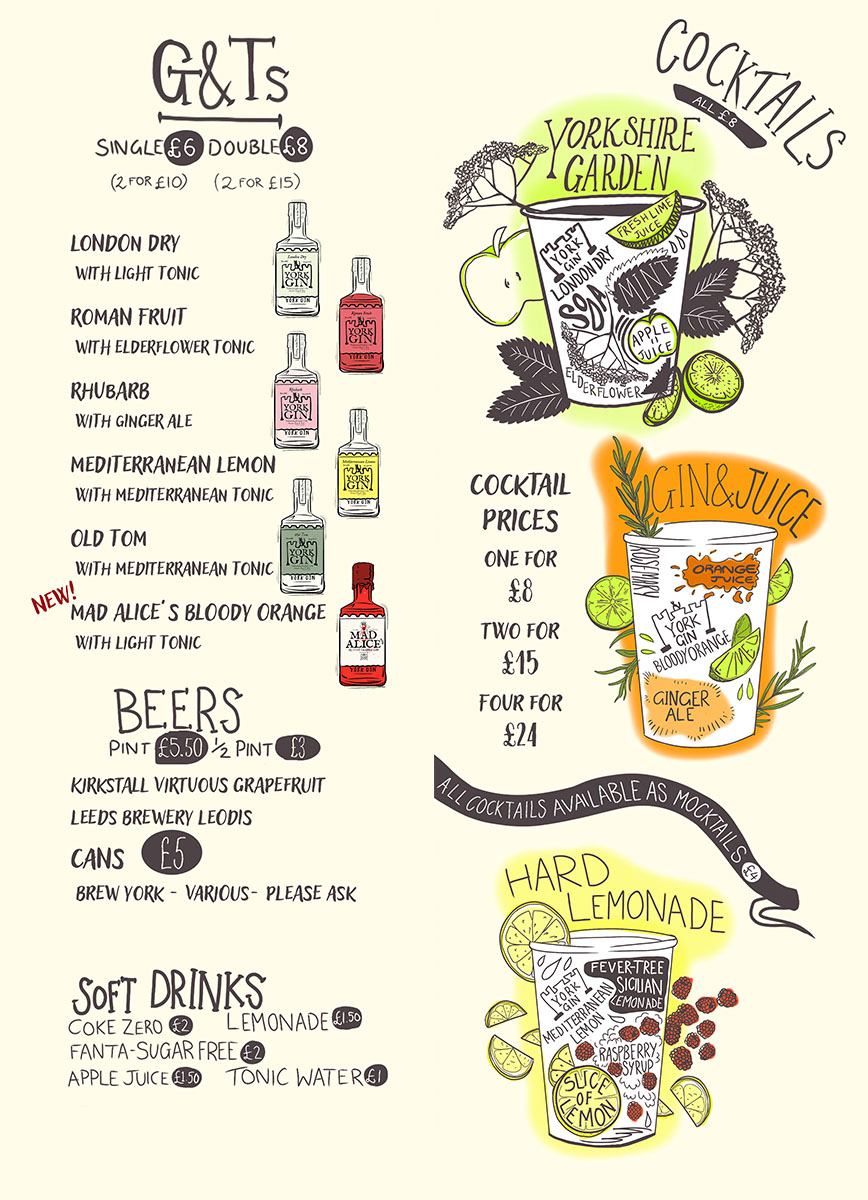 G&Ts
SINGLE £6 DOUBLE £8
(2 FOR £10) (2 FOR £15)
LONDON DRY
WITH LIGHT TONIC
ROMAN FRUIT
WITH ELDERFLOWER TONIC
RHUBARB
WITH GINGER ALE
MEDITERRANEAN LEMON
WITH MEDITERRANEAN TONIC
OLD TOM
WITH MEDITERRANEAN TONIC
NEW!
MAD ALICE'S BLOODY ORANGE
WITH LIGHT TONIC
London Dry
YORK
GIN
YORK GIN
Roman Fruit
YORK
GIN
YORK GIN
Rhubarb
YORK
GIN
YORK GIN
Mediterranean Lemon
YORK
GIN
YORK GIN
Old Tom
YORK
GIN
YORK GIN
MAD
ALICE'S
YORK GIN
BEERS
PINT £5.50 ½ PINT £3
KIRKSTALL VIRTUOUS GRAPEFRUIT
LEEDS BREWERY LEODIS
CANS £5
BREW YORK - VARIOUS- PLEASE ASK
SOFT DRINKS
COKE ZERO £2 LEMONADE £1.50
FANTA-SUGAR FREE £2
APPLE JUICE £1.50 TONIC WATER £1
COCKTAILS
ALL £8
YORKSHIRE
GARDEN
FRESH LIME
JUICE
YORK
GIN
LONDON DRY
MINT
SODA
APPLE
JUICE
ELDERFLOWER
COCKTAIL
PRICES
ONE FOR
£8
TWO FOR
£15
FOUR FOR
£24
GIN & JUICE
ROSEMARY
ORANGE
JUICE
YORK
GIN
BLOODY ORANGE
LIME
GINGER
ALE
ALL COCKTAILS AVAILABLE AS MOCKTAILS £4
HARD
LEMONADE
FEVER-TREE
SICILIAN
LEMONADE
YORK
GIN
MEDITERRANEAN
LEMON
RASPBERRY
SYRUP
SLICE
OF
LEMON